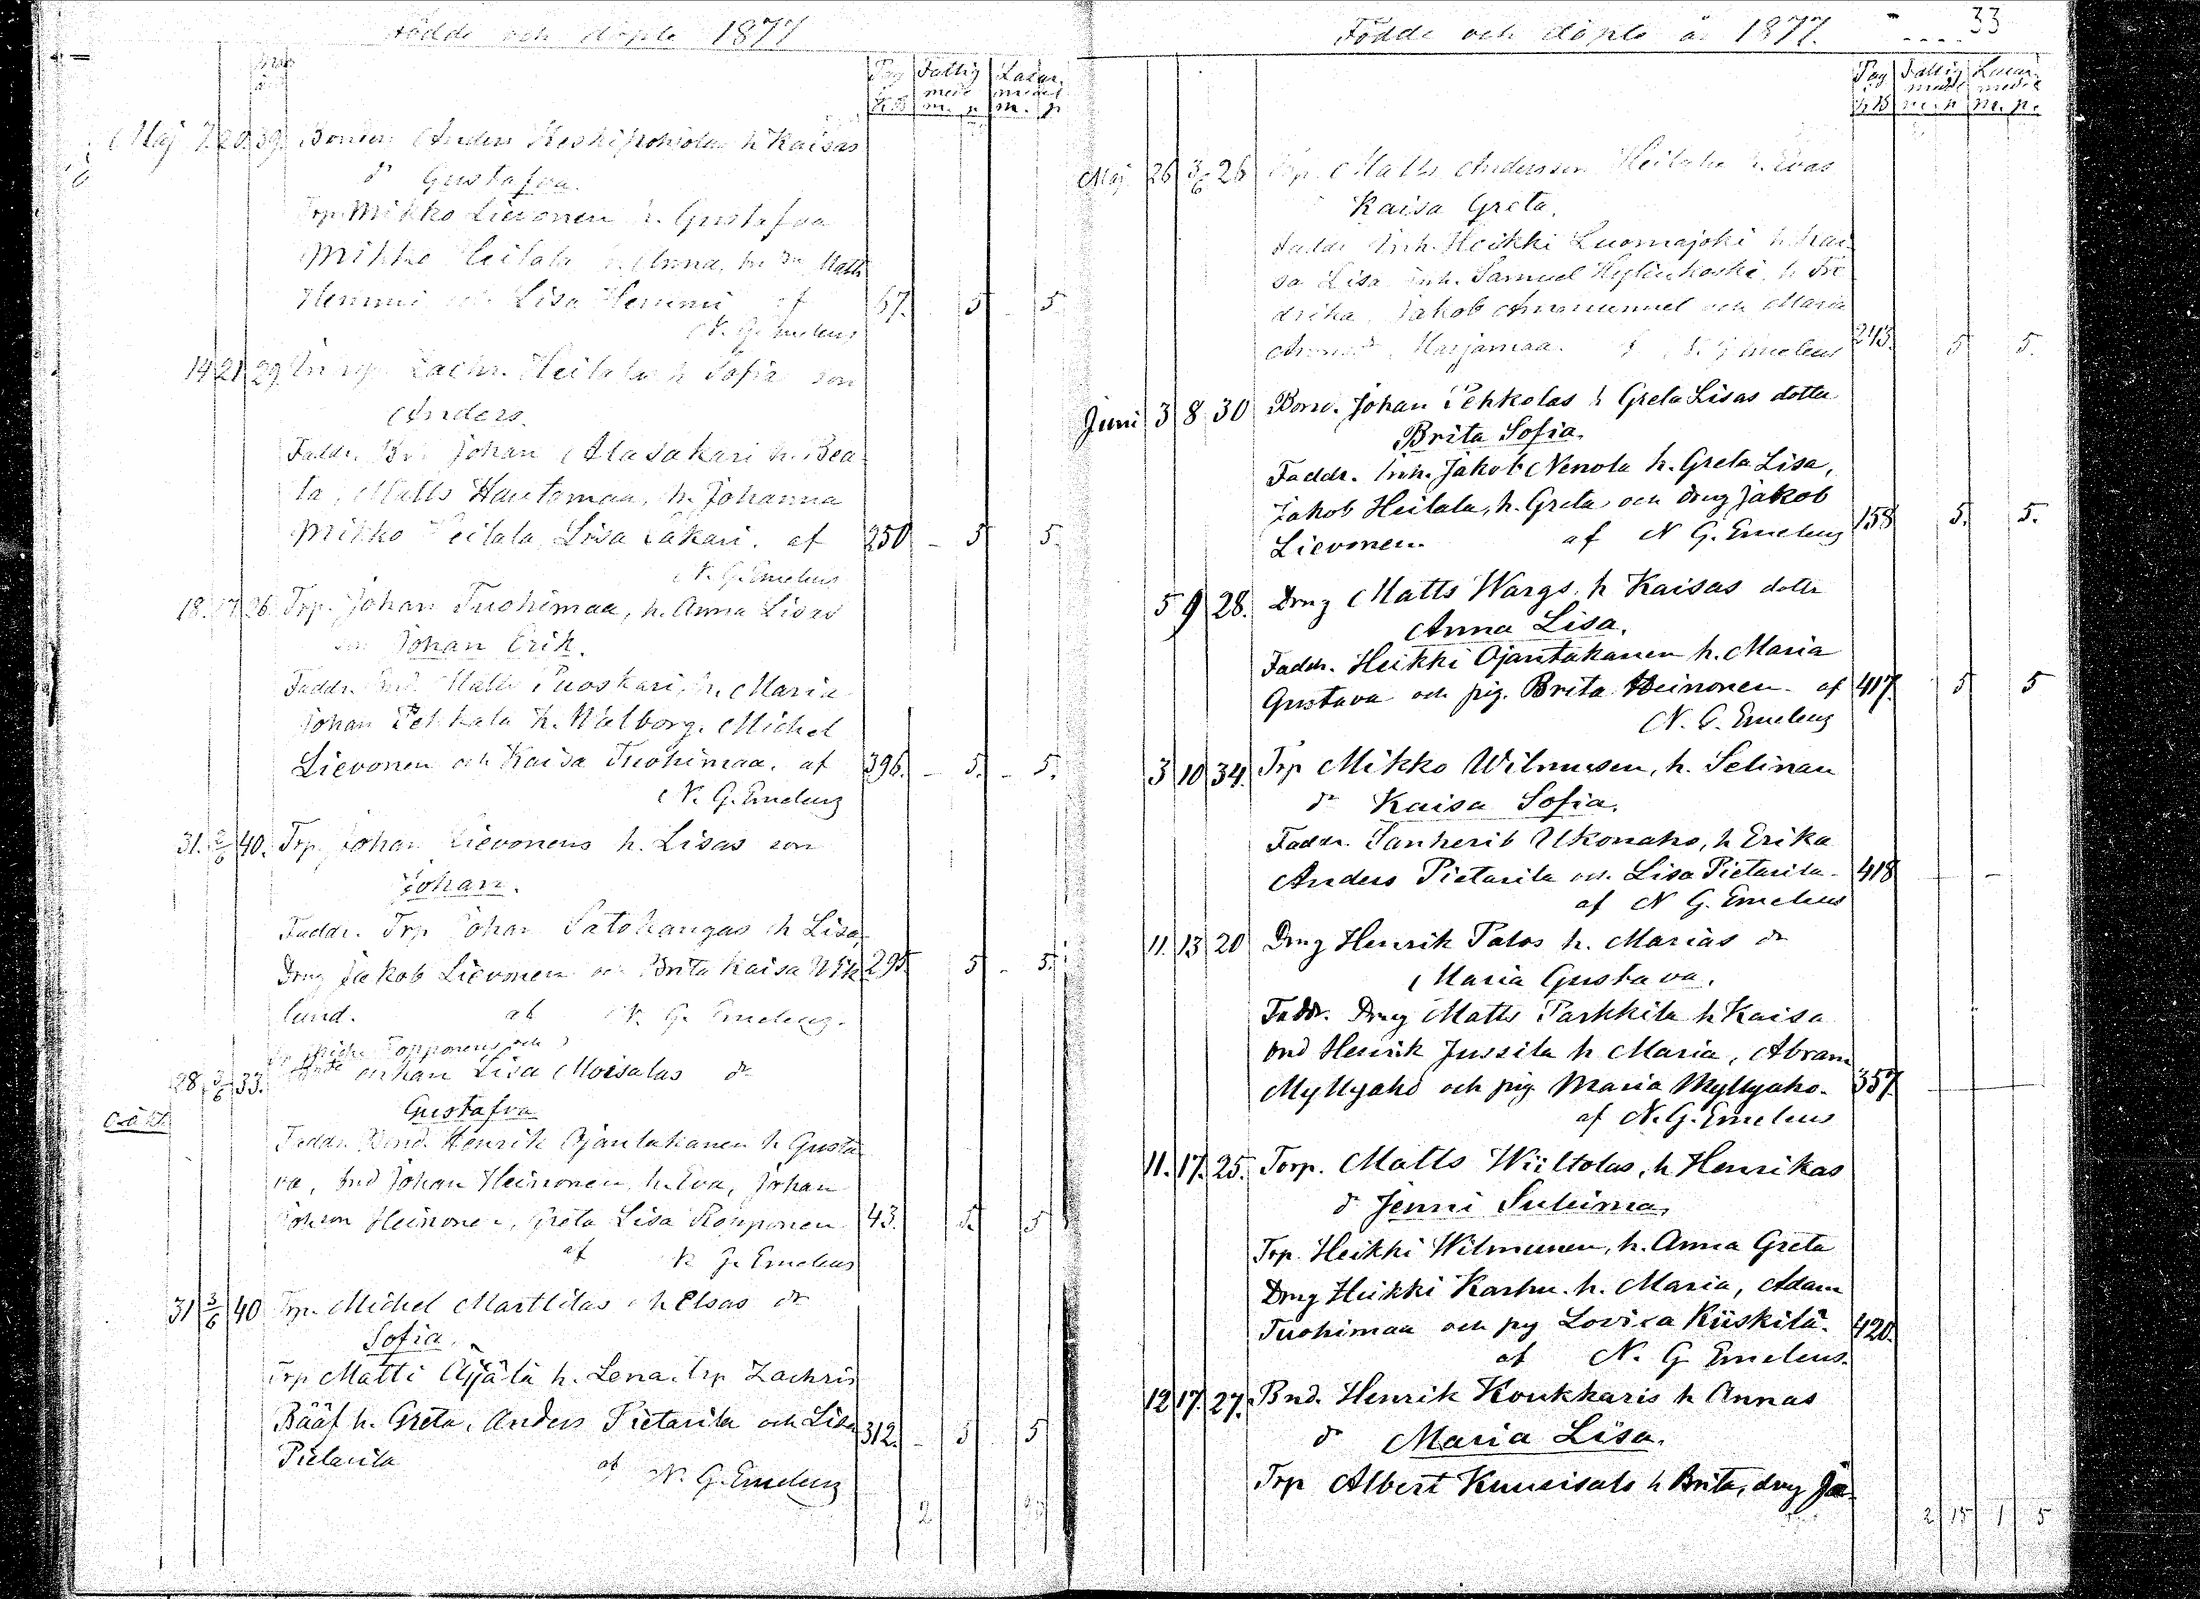 Födde och döpte 1877
Pag Fattig Lazar.
med medel
K.B m. p m. p
Maj 7. 20. 39. Bonden Anders Keskipohjola h Kaisas
dr Gustafva.
Trp. Mikko Lievonen h. Gustafva
Mikko Heilala h. Anna, Matts
Hemmi och Lisa Hemmi af 67. - 5 - 5
N. G. Emeleus
14 21 29 Zachr. Heilala h Sofia son
Anders.
Faddr. Johan Alasakari h. Bea-
ta, Matts Hautamaa, h. Johanna
Mikko Heilala Lisa Sakari. af 250 - 5 5.
N. G. Emeleus
18. 17 26. Trp. Johan Tuohimaa, h. Anna Lisas
son Johan Erik.
Faddr. Bnd. Matts Puoskari, h. Maria
Johan Pehkala h. Walborg. Michel
Lievonen och Kaisa Tuohimaa. af 396. - 5. - 5.
N. G. Emeleus
31. 3/6 40. Trp. Johan Lievonens h. Lisas son
Johan.
Faddr. Trp Johan Satokangas h Lisa,
Drng Jakob Lievonen och Brita Kaisa Wik 295 5 - 5.
lund. af N. G. Emeleus.
Ropponens och
28. 3/6 33. enkan Lisa Moisalas dr
Gustafva
Faddr. Bnd. Henrik Ojantakanen h Gusta
va, bnd Johan Heinonen h. Eva, Johan
Johson Heinonen, Greta Lisa Ropponen 43. 5. 5
af N. G. Emeleus
31 3/6 40 Trp. Michel Marttilas h Elsas dr
Sofia.
Trp Matti Äijälä h. Lena. trp Zachris
Bääf h. Greta, Anders Pietarila och Lisa 312. - 5 5
Pietarila af N. G. Emeleus
2
Födde och döpte år 1877. 33
Pag Fattig Lazar.
medel medel
K.B m. p m. p.
Maj 26 3/6 26 Trp. Matts Andersson Heilala h. Evas
Kaisa Greta.
Faddr Inh. Heikki Luomajoki h. Kai
sa Lisa inh. Samuel Kylinkoski h Fre
drika Jakob Ammunmel och Maria
Marjamaa. af N. G Emeleus 243. 5 5.
Juni 3 8 30 Bond. Johan Pehkolas h Greta Lisas dotter
Brita Sofia.
Faddr. Inh. Jakob Nenola h. Greta Lisa,
Jakob Heilala, h. Greta och drng Jakob
Lievonen. af N G. Emeleus 158 5. 5.
5 9 28. Drng Matts Wargs h Kaisas dotter
Anna Lisa.
Faddr. Heikki Ojantakanen h. Maria
Gustava och pig. Brita Heinonen. af 417. 5 5
N. G. Emeleus
3 10 34. Trp Mikko Wilmusen, h. Selinan
dr Kaisa Sofia.
Faddr. Sanherib Ukonaho, h Erika
Anders Pietarila och Lisa Pietarila. 418 - -
af N G. Emeleus
11. 13 20 Drng Henrik Palos h. Marias dr
Maria Gustava.
Faddr. Drng Matts Parkkila h Kaisa
bnd Henrik Jussila h Maria, Abram
Myllyaho och pig Maria Myllyaho. 357.
af N. G. Emeleus
11. 17. 25. Torp. Matts Wiiltolas, h Henrikas
dr Jenni Sulima,
Trp. Heikki Wilmunen, h. Anna Greta
Drng Heikki Karhu. h. Maria, Adam
Tuohimaa och pig Lovisa Kiiskilä. 420.
af N. G Emeleus.
12 17. 27. Bnd. Henrik Koukkaris h Annas
dr Maria Lisa.
Trp Albert Kuusisalo h Brita, drng Ja-
2 15 1 5